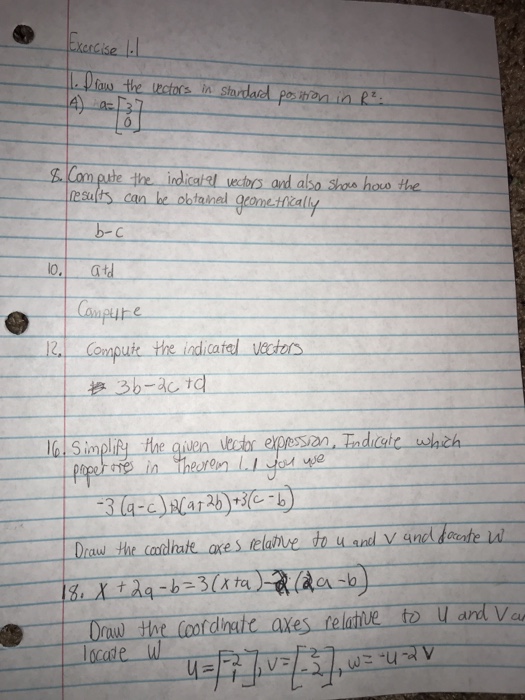 Exercise 1.1
1. Draw the vectors in standard position in R²:
A) a=[3 0]
8. Compute the indicated vectors and also show how the
results can be obtained geometrically
b-c
10. a+d
Compute
12. Compute the indicated vectors
3b-2c+d
16. Simplify the given vector expression. Indicate which
properties in Theorem 1.1 you use
-3(a-c)+2(a+2b)+3(c-b)
Draw the coordnate axes relative to u and v and locate w
18. x+2a-b=3(x+a)-2(2a-b)
Draw the coordinate axes relative to u and v an
locate w
u=[-2 1], v=[2 -2], w=-u-2v